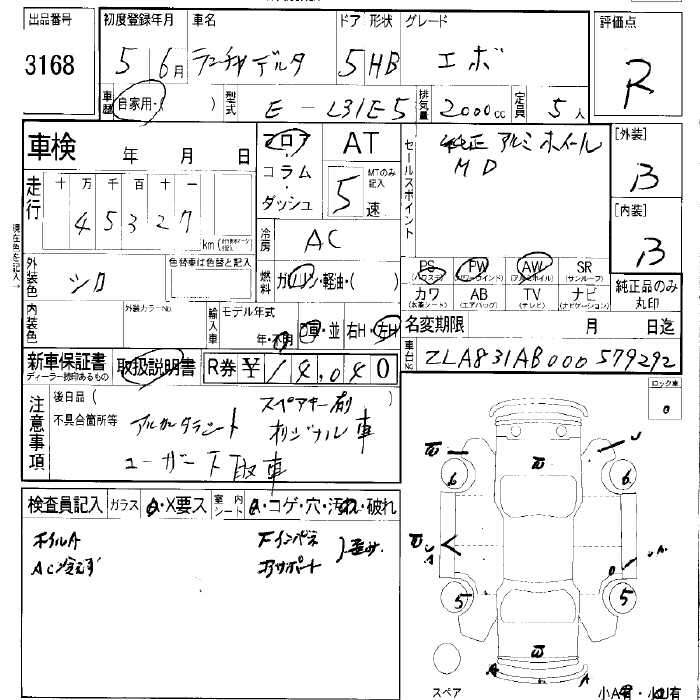 出品番号
3168
初度登録年月
5 6月
車名
ランチア デルタ
ドア 形状
5 HB
グレード
エボ
評価点
R
車歴
自家用・( )
型式
E - L31E5
排気量
2000cc
定員
5人
車検
年 月 日
フロア・コラム・ダッシュ
AT
MTのみ記入
5速
セールスポイント
純正アルミホイール
MD
[外装]
B
[内装]
B
走行
十万千百十一
45327
km
冷房
AC
外装色
シロ
色替車は色替と記入
燃料
ガソリン・軽油・( )
PS
(パワステ)
PW
(パワーウインド)
AW
(アルミホイル)
SR
(サンルーフ)
カワ
(本革シート)
AB
(エアバッグ)
TV
(テレビ)
ナビ
(ナビゲーション)
純正品のみ丸印
内装色
外装カラーNo.
輸入車
モデル年式
年・不明
D車・並
右H・左H
名変期限
月 日迄
車台No.
ZLA831AB000579292
新車保証書
ディーラー捺印あるもの
取扱説明書
R券 ¥14,040
ロック車
注意事項
後日品( スペアキー有り )
不具合箇所等
アルカンタラシート オリジナル車
ユーザー下取車
検査員記入
ガラス
A・X要ス
室内シート
A・コゲ・穴・汚れ・破れ
ホイルA
AC冷えず
Fインパネ
6
6
5
5
スペア